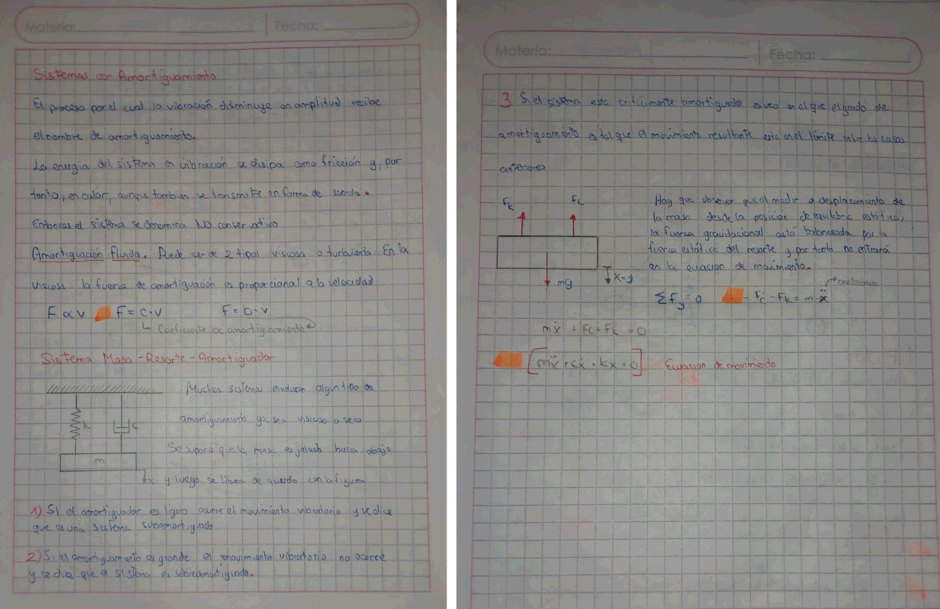 Materia:
Fecha:
Sistemas con Amortiguamiento
El proceso por el cual la vibración disminuye en amplitud recibe
el nombre de amortiguamiento.
La energia del sistema en vibración se disipa como fricción y, por
tanto, en calor, aunque tambien se transmite en forma de sonido.
Entonces el sistema se denomina NO conservativo
Amortiguación Fluida. Puede ser de 2 tipos viscosa o turbulenta En la
viscosa la fuerza de amortiguación es proporcional a la velocidad
F ∝ v F = c·v F = b·v
Coeficiente de amortiguamiento
Sistema Masa - Resorte - Amortiguador
k c
m
x
Muchos sistemas involucran algun tipo de
amortiguamiento ya sea viscoso o seco
Se supone que la masa es jalada hacia abajo
y luego se libera de acuerdo con la figura
1) Si el amortiguador es ligero ocurre el movimiento vibratorio y se dice
que es una sistema subamortiguado
2) Si el amortiguamiento es grande el movimiento vibratorio no ocurre
y se dice que el sistema es sobreamortiguado.
Materia:
Fecha:
3 Si el sistema esta criticamente amortiguado o sea en el que el grado de
amortiguamiento es tal que el movimiento resultante esta en el límite entre los casos
anteriores
Fk Fc
mg
x=y
Hay que observar que al medir el desplazamiento de
la masa desde la posición de equilibrio estático,
la fuerza gravitacional está balanceada por la
fuerza estática del resorte y por tanto no entrará
en la ecuación de movimiento.
ΣFy = 0 - Fc - Fk = m·ẍ
mẍ + Fc + Fk = 0
[mẍ + cẋ + kx = 0] Ecuacion de movimiento